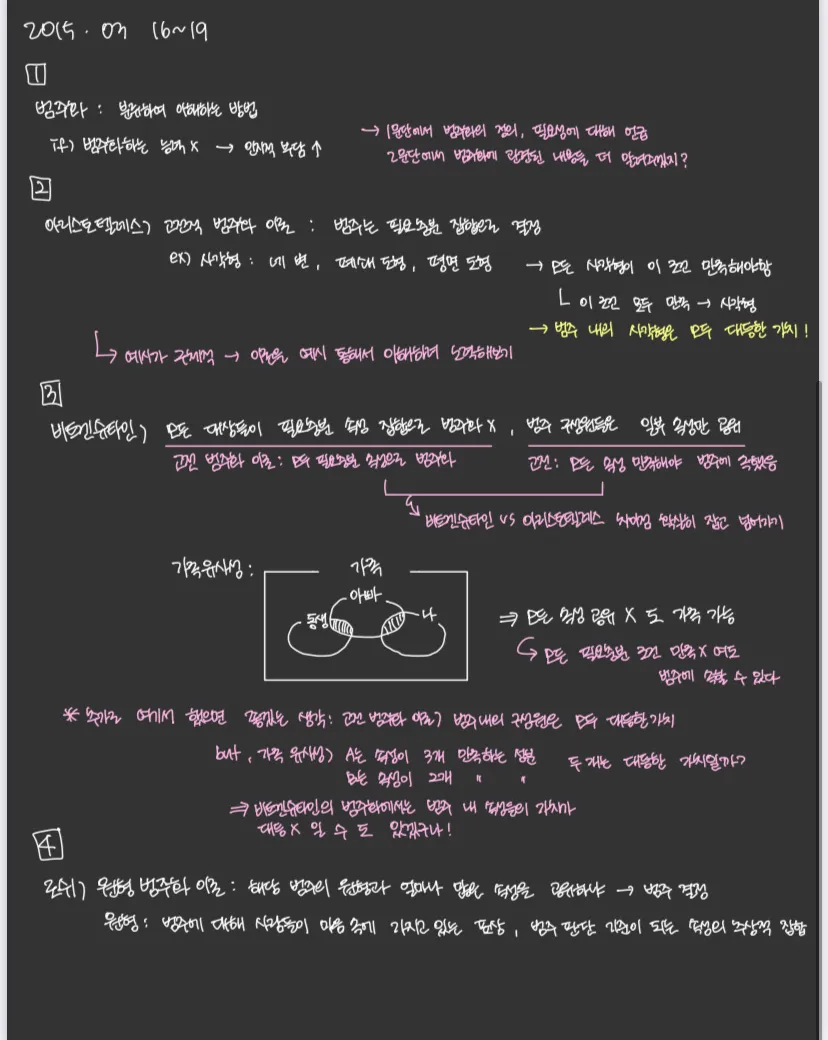 2015. 03 16~19
1
범주화 : 분류하여 이해하는 방법
if) 범주화하는 능력 X → 인지적 부담 ↑
→ 1문단에서 범주화의 정의, 필요성에 대해 언급
2문단에서 범주화에 관련된 내용을 더 알려주겠지?
2
아리스토텔레스) 고전적 범주화 이론 : 범주는 필요충분 집합으로 결정
ex) 사각형 : 네 변, 폐쇄 도형, 평면 도형 → 모든 사각형이 이 조건 만족해야함
└ 이 조건 모두 만족 → 사각형
→ 범주 내의 사각형은 모두 대등한 가치!
↳ 예시가 구체적 → 이론을 예시 통해서 이해하려 노력해보기
3
비트겐슈타인) 모든 대상들이 필요충분 속성 집합으로 범주화 X, 범주 구성원들은 일부 속성만 공유
고전 범주화 이론 : 모두 필요충분 속성으로 범주화
고전 : 모든 속성 만족해야 범주에 속했음
↳ 비트겐슈타인 vs 아리스토텔레스 차이점 확실히 잡고 넘어가기
가족유사성 :
가족
아빠
동생
나
⇒ 모든 속성 공유 X 도 가족 가능
↳ 모든 필요충분 조건 만족 X 여도
범주에 속할 수 있다
* 추가로 여기서 했으면 좋겠는 생각 : 고전 범주화 이론) 범주내의 구성원은 모두 대등한가치
but, 가족 유사성) A는 속성이 3개 만족하는 성분
B는 속성이 2개 " "
두 개는 대등한 가치일까?
⇒ 비트겐슈타인의 범주화에서는 범주 내 속성들의 가치가
대등 X 일 수 도 있겠구나!
4
로쉬) 원형 범주화 이론 : 해당 범주의 원형과 얼마나 많은 속성을 공유하냐 → 범주 결정
원형 : 범주에 대해 사람들이 마음 속에 가지고 있는 표상, 범주 판단 기준이 되는 속성의 추상적 집합